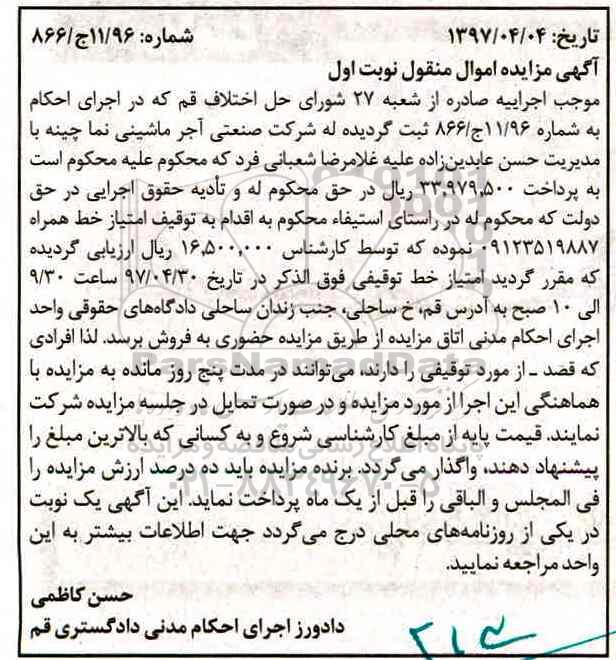 تاریخ: ۱۳۹۷/۰۴/۰۴ شماره: ۱۱/۹۶ج/۸۶۶
آگهی مزایده اموال منقول نوبت اول
موجب اجراییه صادره از شعبه ۲۷ شورای حل اختلاف قم که در اجرای احکام
به شماره ۱۱/۹۶ج/۸۶۶ ثبت گردیده له شرکت صنعتی آجر ماشینی نما چینه با
مدیریت حسن عابدین‌زاده علیه غلامرضا شعبانی فرد که محکوم علیه محکوم است
به پرداخت ۳۳،۹۷۹،۵۰۰ ریال در حق محکوم له و تأدیه حقوق اجرایی در حق
دولت که محکوم له در راستای استیفاء محکوم به اقدام به توقیف امتیاز خط همراه
۰۹۱۲۳۵۱۹۸۸۷ نموده که توسط کارشناس ۱۶،۵۰۰،۰۰۰ ریال ارزیابی گردیده
که مقرر گردید امتیاز خط توقیفی فوق الذکر در تاریخ ۹۷/۰۴/۳۰ ساعت ۹/۳۰
الی ۱۰ صبح به آدرس قم، خ ساحلی، جنب زندان ساحلی دادگاه‌های حقوقی واحد
اجرای احکام مدنی اتاق مزایده از طریق مزایده حضوری به فروش برسد. لذا افرادی
که قصد ـ از مورد توقیفی را دارند، می‌توانند در مدت پنج روز مانده به مزایده با
هماهنگی این اجرا از مورد مزایده و در صورت تمایل در جلسه مزایده شرکت
نمایند. قیمت پایه از مبلغ کارشناسی شروع و به کسانی که بالاترین مبلغ را
پیشنهاد دهند، واگذار می‌گردد. برنده مزایده باید ده درصد ارزش مزایده را
فی المجلس و الباقی را قبل از یک ماه پرداخت نماید. این آگهی یک نوبت
در یکی از روزنامه‌های محلی درج می‌گردد جهت اطلاعات بیشتر به این
واحد مراجعه نمایید.
حسن کاظمی
دادورز اجرای احکام مدنی دادگستری قم
ParsNamadData
پایگاه اطلاع رسانی مناقصه و مزایده
۰۲۱-۸۸۳۴۹۶۷۰-۵